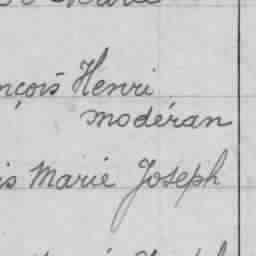 nçois Henri
modéran
is Marie Joseph